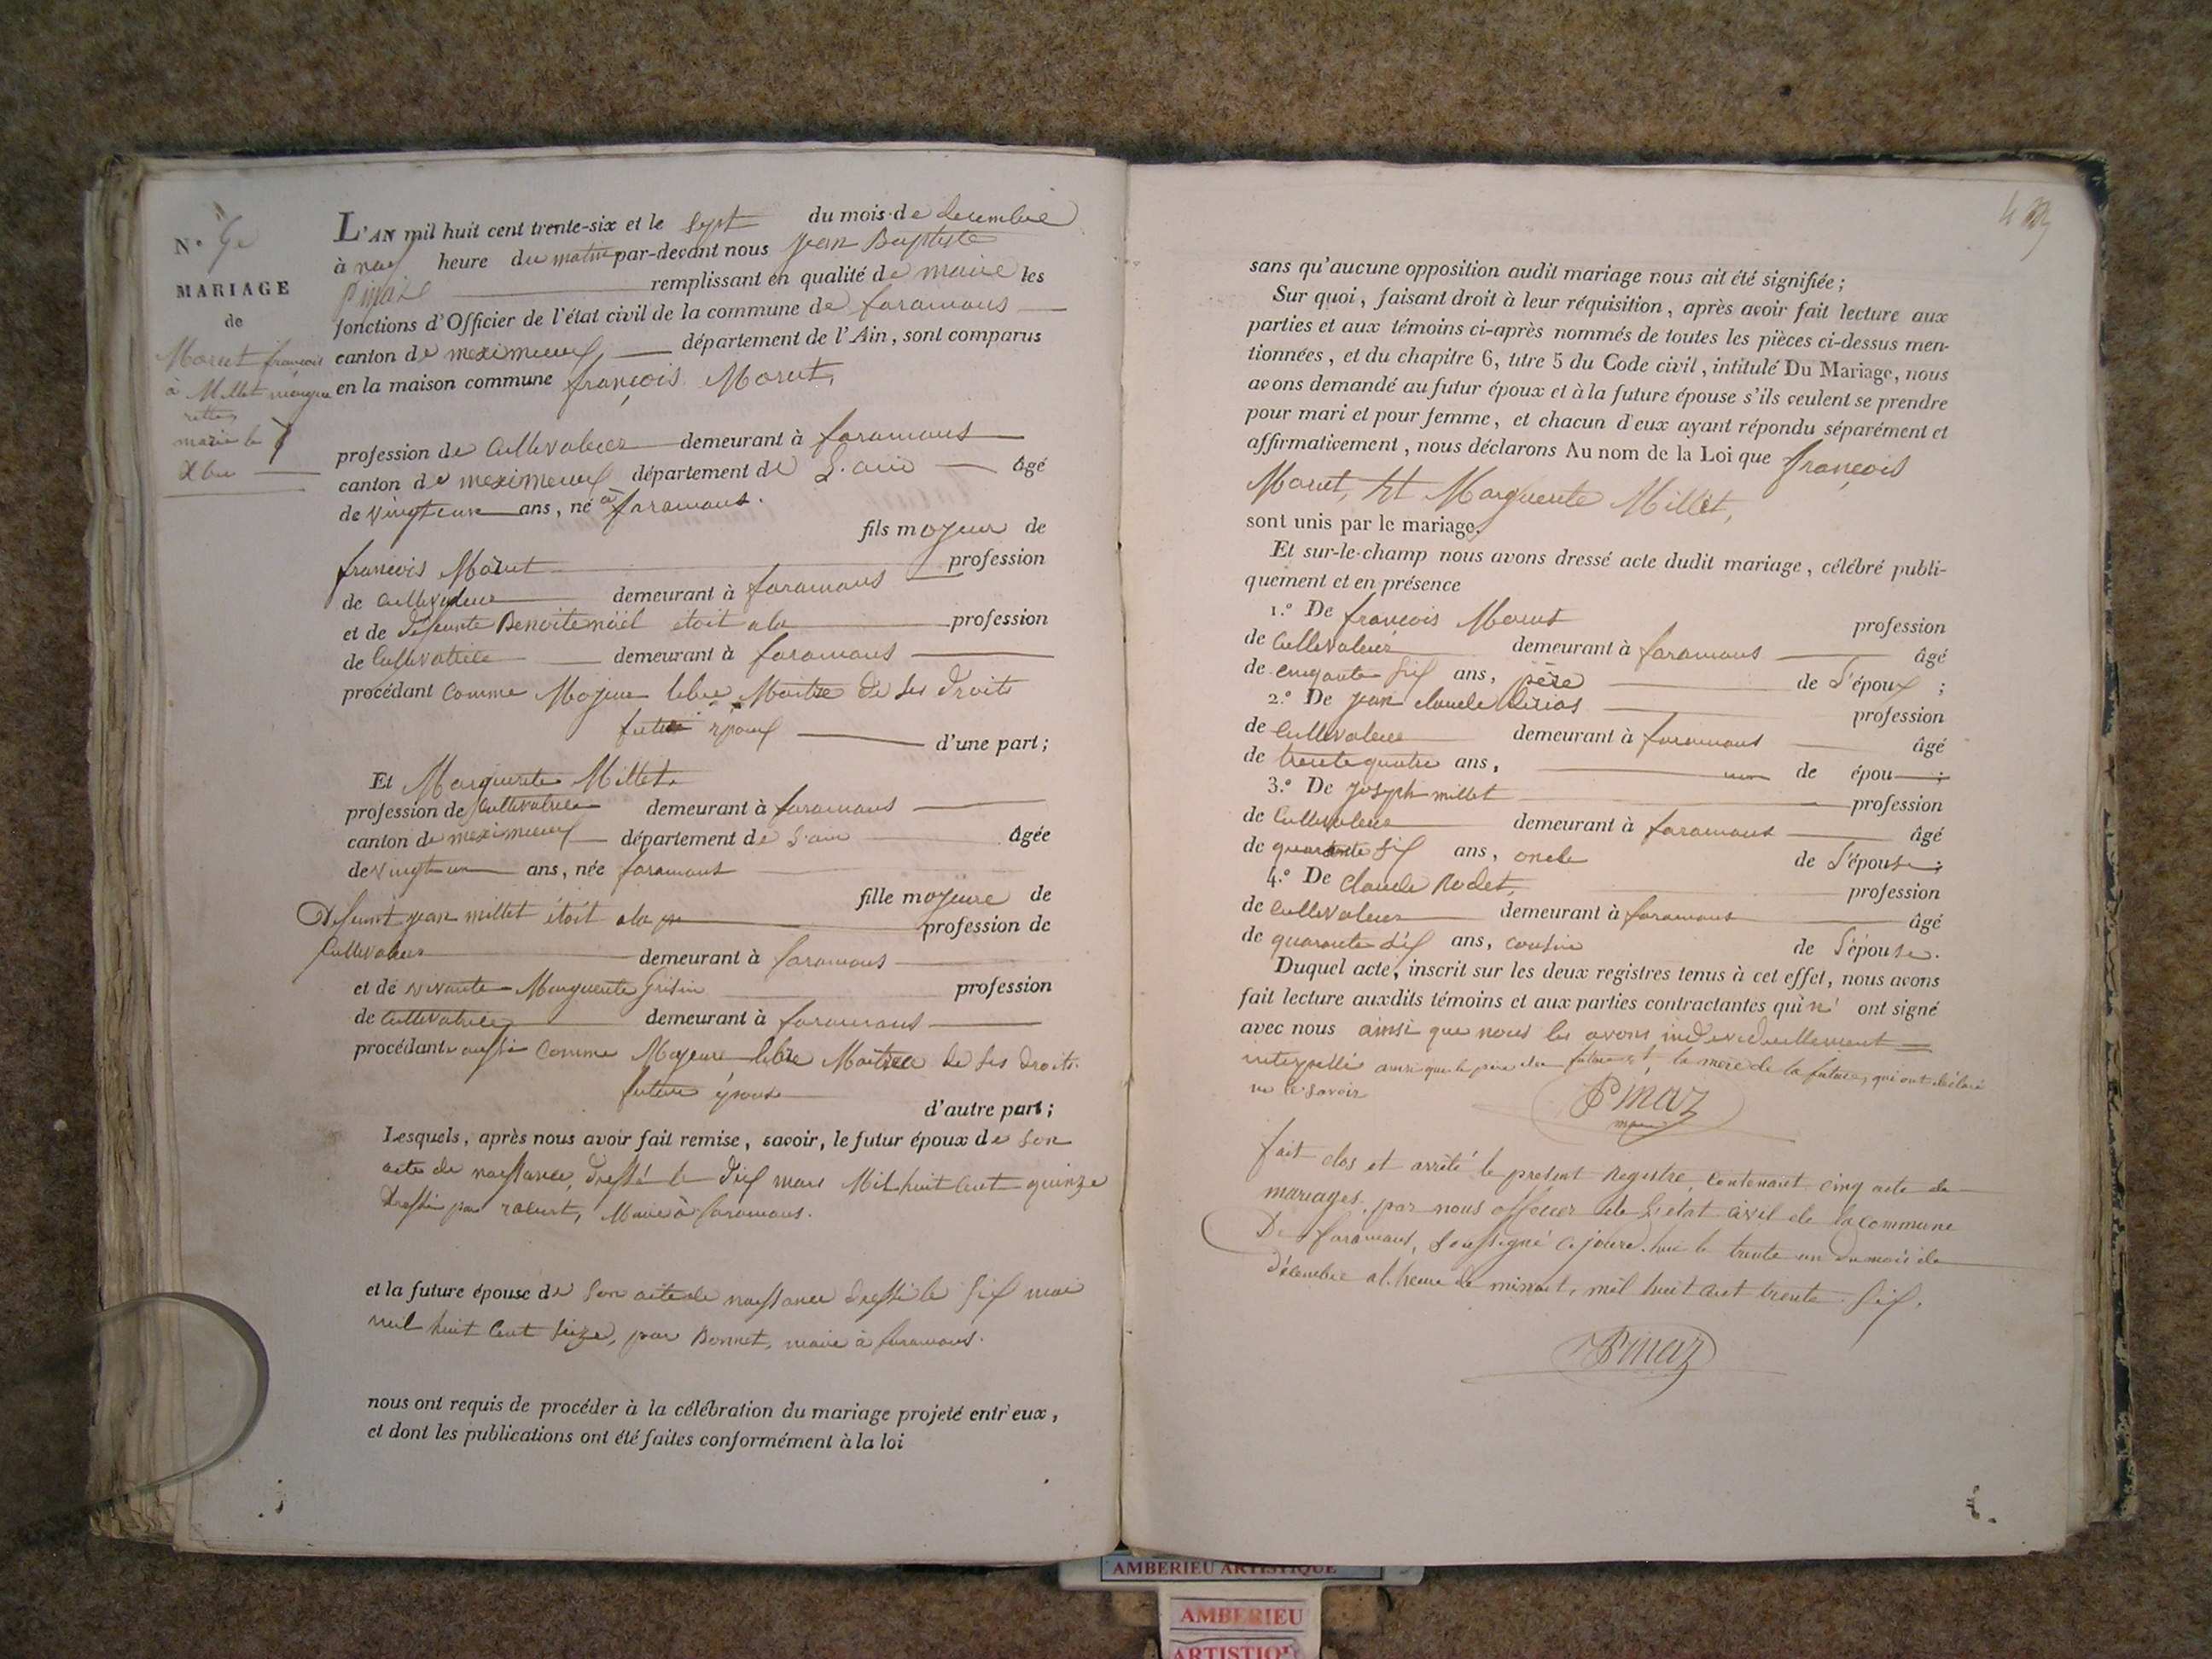 N.º 5e
MARIAGE
de
Morut françois
à Millet margue
ritte
marié le 7
Xbre
L'AN mil huit cent trente-six et le sept du mois de decembre
à neuf heure du matin par-devant nous Jean Baptiste
remplissant en qualité de maire les
fonctions d'Officier de l'état civil de la commune de faramans
canton de meximieux département de l'Ain, sont comparus
en la maison commune françois Morut,
profession de Cultivateur demeurant à faramans
canton de meximieux département de L'ain âgé
de vingt un ans, né à faramans.
fils majeur de
francois Morut profession
de cultivateur demeurant à faramans
et de défunte Benoite noël étoit a la profession
de Cultivatrice demeurant à faramans
procédant comme Majeur libre Maitre de ses droits
futur époux d'une part;
Et Marguerite Millet,
profession de Cultivatrice demeurant à faramans
canton de meximieux département de L'ain âgée
de vingt un ans, née faramans
fille majeure de
Défunt jean millet étoit a la profession de
Cultivateur demeurant à faramans
et de vivante Marguerite Grisin profession
de Cultivatrice demeurant à faramans
procédante aussi comme Majeure libre Maitresse de ses droits.
future épouse
d'autre part;
Lesquels, après nous avoir fait remise, savoir, le futur époux de son
acte de naissance, dressé le dix mars Mil huit cent quinze
dressé par Maire à faramans.
et la future épouse de son acte de naissance dressé le six mai
mil huit cent seize, par Bonnet, maire à faramans.
nous ont requis de procéder à la célébration du mariage projeté entr'eux,
et dont les publications ont été faites conformément à la loi
sans qu'aucune opposition audit mariage nous ait été signifiée;
Sur quoi, faisant droit à leur réquisition, après avoir fait lecture aux
parties et aux témoins ci-après nommés de toutes les pièces ci-dessus men-
tionnées, et du chapitre 6, titre 5 du Code civil, intitulé Du Mariage, nous
avons demandé au futur époux et à la future épouse s'ils veulent se prendre
pour mari et pour femme, et chacun d'eux ayant répondu séparément et
affirmativement, nous déclarons Au nom de la Loi que françois
Morut, Et Marguerite Millet,
sont unis par le mariage.
Et sur-le-champ nous avons dressé acte dudit mariage, célébré publi-
quement et en présence
1.º De francois Morut profession
de Cultivateur demeurant à faramans âgé
de cinqante six ans, père de L'époux ;
2.º De jean claude profession
de Cultivateur demeurant à faramans âgé
de trente quatre ans, de épou ;
3.º De joseph millet profession
de Cultivateur demeurant à faramans âgé
de quarante six ans, oncle de L'épouse ;
4.º De Claude Rodet, profession
de Cultivateur demeurant à faramans âgé
de quarante six ans, cousin de L'épouse.
Duquel acte, inscrit sur les deux registres tenus à cet effet, nous avons
fait lecture auxdits témoins et aux parties contractantes qui n' ont signé
avec nous ainsi que nous les avons individuellement
interpellé ainsi que le père du futur et la mère de la future, qui ont déclaré
ne le savoir
Pinaz
maire
fait clos et arrêté le present Registre, contenant cinq acte de
mariages, par nous officier de L'etat civil de la commune
De faramans, soussigné cejourd'hui le trente un du mois de
décembre a l'heure de minuit, mil huit cent trente six.
Pinaz
AMBERIEU ARTISTIQUE
AMBERIEU